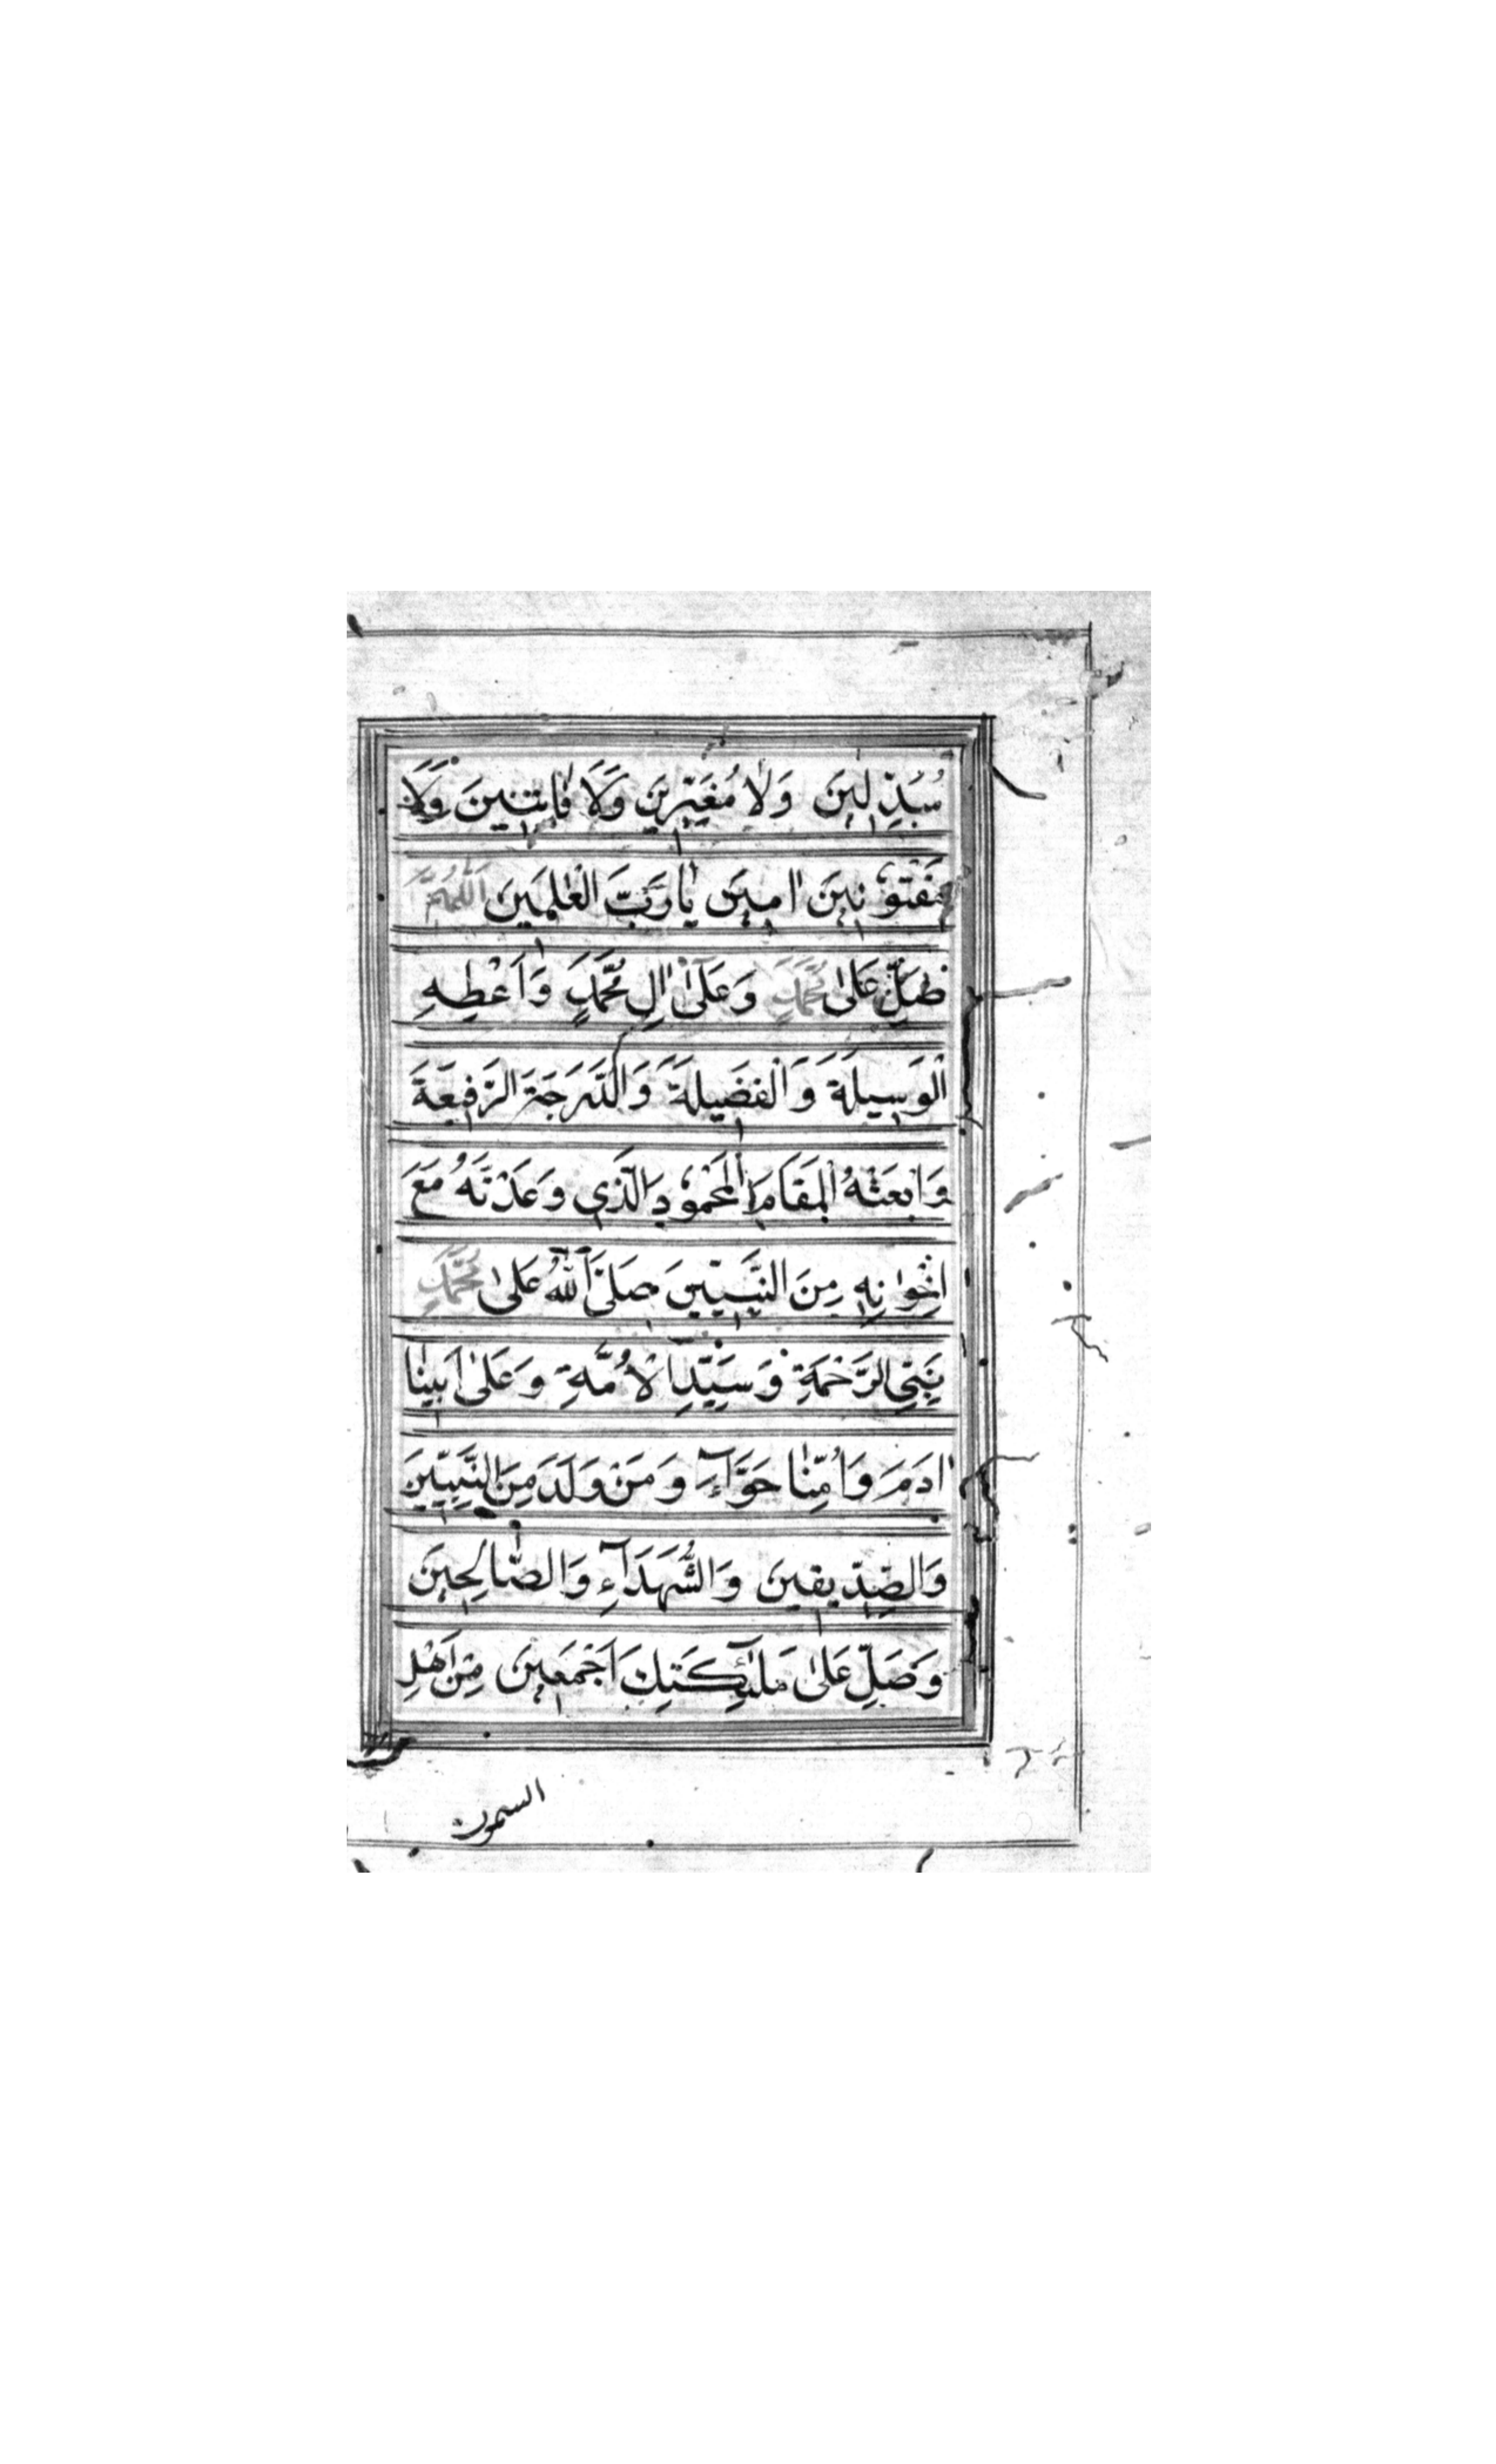 مُبَدِّلِينَ وَلَا مُغَيِّرِينَ وَلَا فَاتِنِينَ وَلَا
مَفْتُونِينَ اٰمِينَ يَا رَبَّ الْعٰلَمِينَ اَللّٰهُمَّ
صَلِّ عَلٰى مُحَمَّدٍ وَعَلٰٓى اٰلِ مُحَمَّدٍ وَاَعْطِهِ
الْوَسِيلَةَ وَالْفَضِيلَةَ وَالدَّرَجَةَ الرَّفِيعَةَ
وَابْعَثْهُ الْمَقَامَ الْمَحْمُودَ الَّذِي وَعَدْتَهُ مَعَ
اِخْوَانِهِ مِنَ النَّبِيِّينَ صَلَّى اللّٰهُ عَلٰى مُحَمَّدٍ
نَبِيِّ الرَّحْمَةِ وَسَيِّدِ الْاُمَّةِ وَعَلٰى اَبِينَا
اٰدَمَ وَاُمِّنَا حَوَّآءَ وَمَنْ وَلَدَ مِنَ النَّبِيِّينَ
وَالصِّدِّيقِينَ وَالشُّهَدَآءِ وَالصَّالِحِينَ
وَصَلِّ عَلٰى مَلٰٓئِكَتِكَ اَجْمَعِينَ مِنْ اَهْلِ
السموت